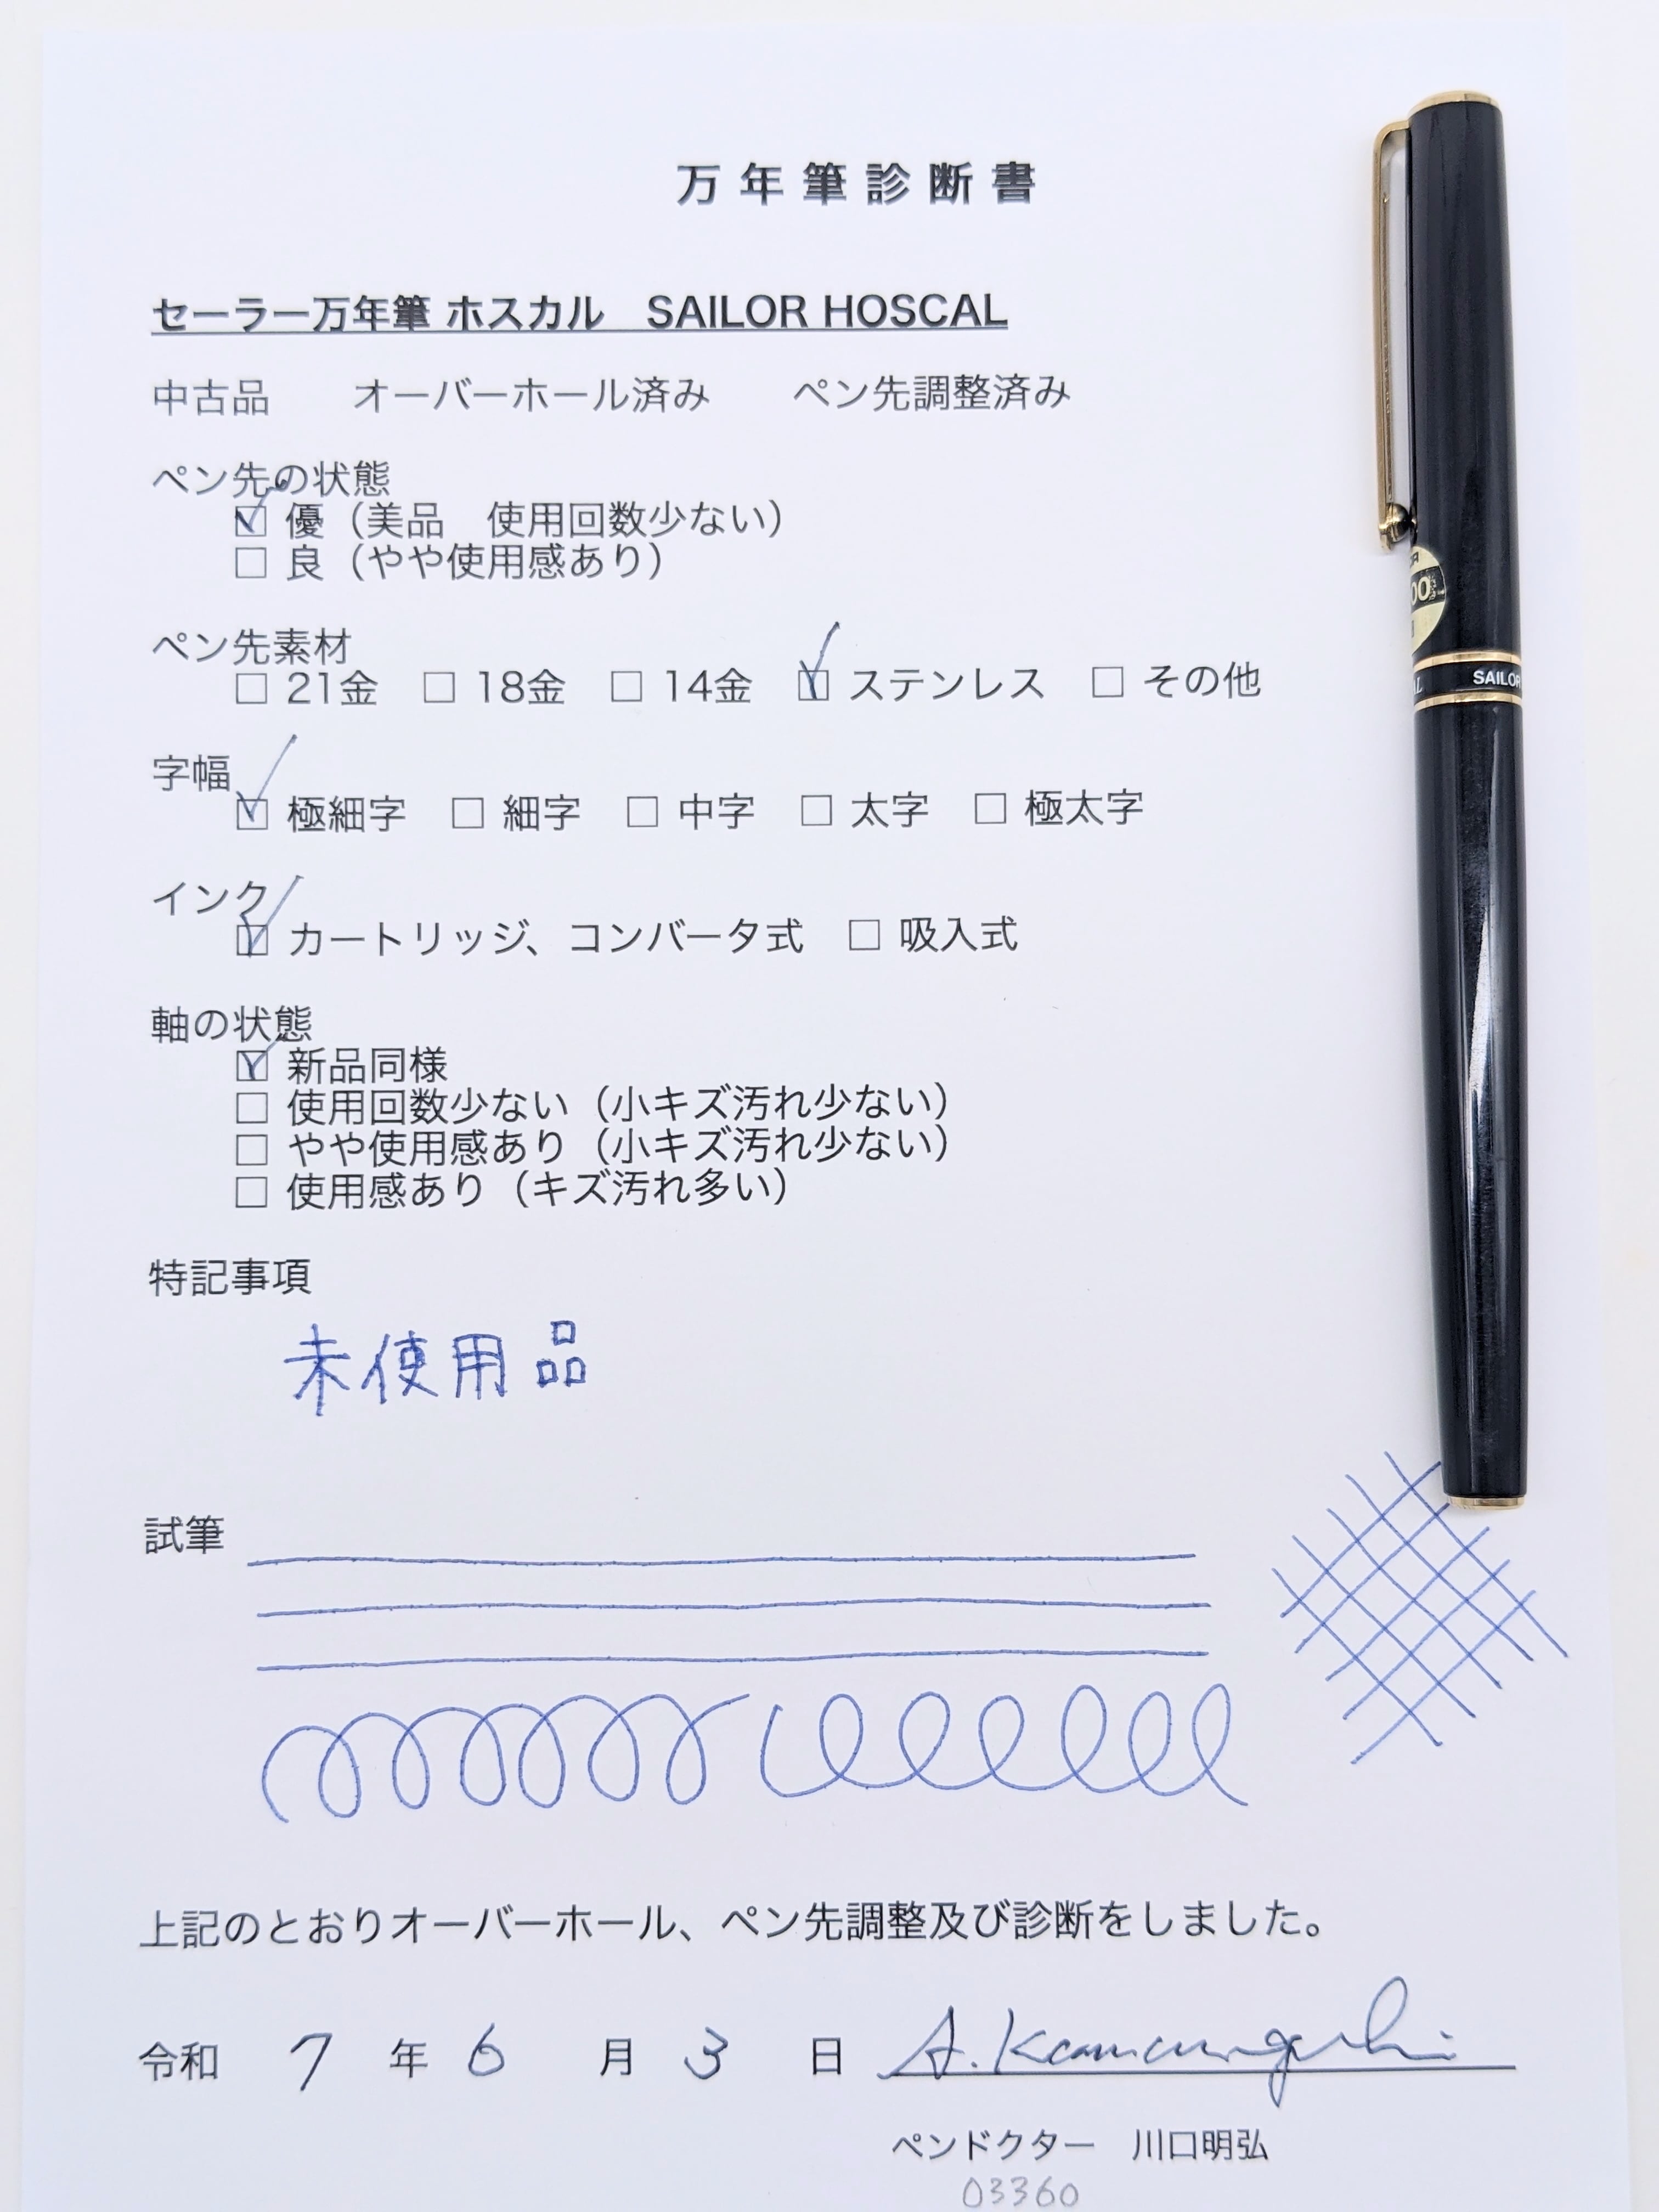 万年筆診断書
セーラー万年筆 ホスカル　SAILOR HOSCAL
中古品　　オーバーホール済み　　ペン先調整済み
ペン先の状態
☑ 優（美品　使用回数少ない）
□ 良（やや使用感あり）
ペン先素材
□ 21金　□ 18金　□ 14金　☑ ステンレス　□ その他
字幅
☑ 極細字　□ 細字　□ 中字　□ 太字　□ 極太字
インク
☑ カートリッジ、コンバータ式　□ 吸入式
軸の状態
☑ 新品同様
□ 使用回数少ない（小キズ汚れ少ない）
□ やや使用感あり（小キズ汚れ少ない）
□ 使用感あり（キズ汚れ多い）
特記事項
未使用品
試筆
上記のとおりオーバーホール、ペン先調整及び診断をしました。
令和 7 年 6 月 3 日 A. Kawaguchi
ペンドクター　川口明弘
03360
SAILOR